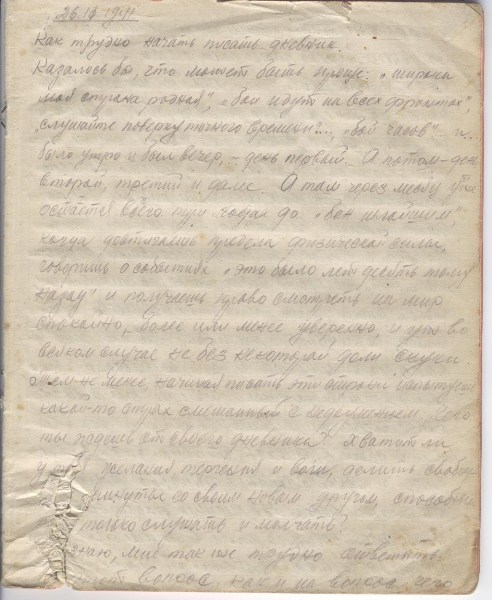 26.12.1941
Как трудно начать писать дневник.
Казалось бы, что может быть проще: „широка
моя страна родная", „бои идут на всех фронтах",
„слушайте поверку точного времени"..., „бой часов"... и
было утро и был вечер, – день первый... А потом – день
второй, третий и далее. А там через
остаётся всего до
когда достигаешь предела физической силы,
говоришь о событиях „это было лет десять тому
назад" и получаешь право смотреть на мир
спокойно, более или менее уверенно, и уж во
всяком случае не без некоторой доли скуки
Тем не мене, начиная писать эти строки
какой-то страх смешанный с Чего
ты ждёшь от своего дневника? Хватит ли
у тебя желания терпения и воли, делить
минуты со своим новым другом, способным
только слушать и молчать?
знаю, мне так же трудно ответить
этот вопрос, как и на вопрос, чего